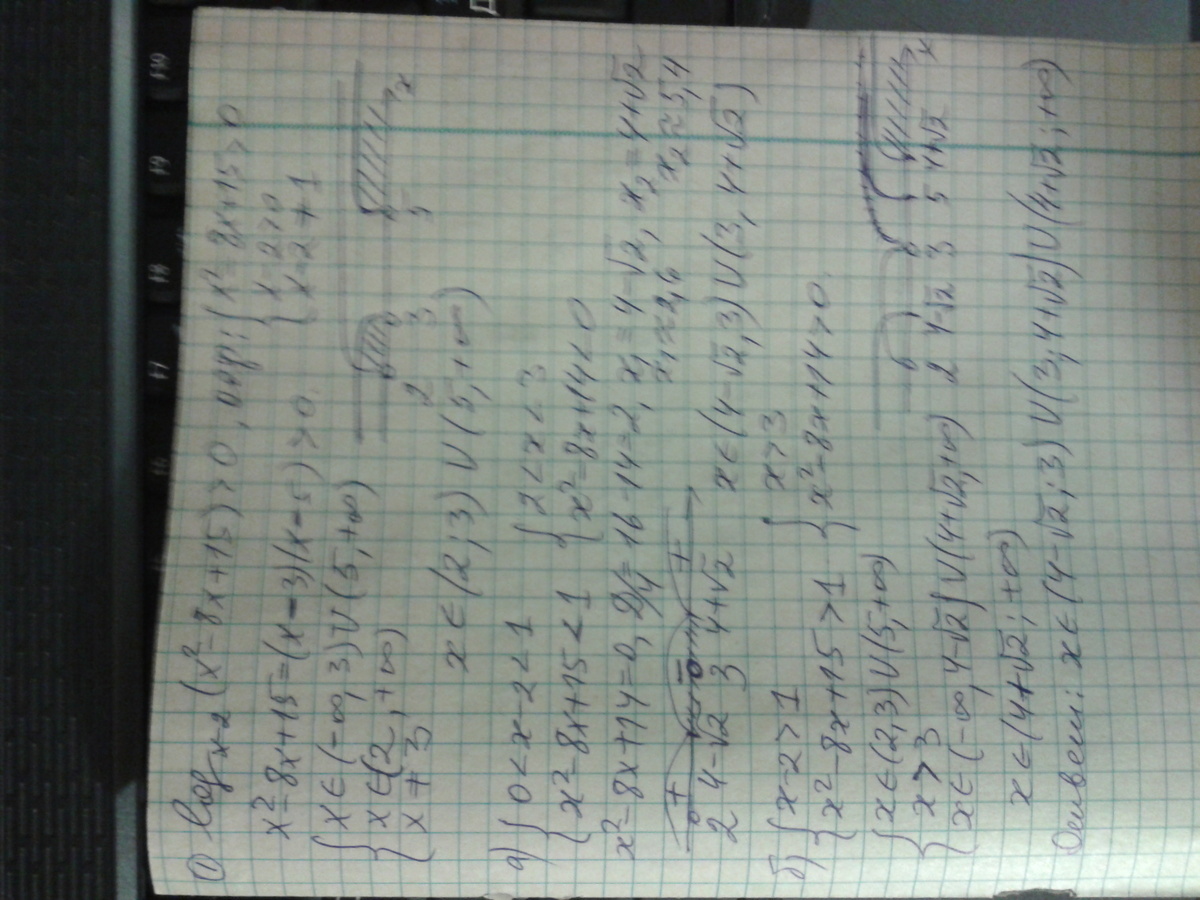 ① log x-2 (x²-8x+15)>0, опр: { x²-8x+15>0
x-2>0
x-2≠1
x²-8x+15=(x-3)(x-5)>0
{ x∈(-∞,3)∪(5,+∞)
x∈(2,+∞)
x≠3
2 3 5 x
x∈(2;3)∪(5,+∞)
а) { 0<x-2<1 { 2<x<3
x²-8x+15<1 x²-8x+14<0
x²-8x+14=0, D/4=16-14=2, x₁=4-√2, x₂=4+√2
x₁≈2,6 x₂≈5,4
+ - +
2 4-√2 3 4+√2 x∈(4-√2,3)∪(3,4+√2)
б) { x-2>1 { x>3
x²-8x+15>1 x²-8x+14>0
{ x∈(2,3)∪(5,+∞)
x>3
x∈(-∞,4-√2)∪(4+√2,+∞)
2 4-√2 3 5 4+√2 x
x∈(4+√2;+∞)
Ответ: x∈(4-√2;3)∪(3,4+√2)∪(4+√2;+∞)